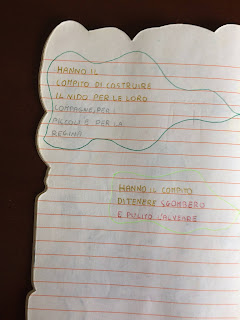 HANNO IL
COMPITO DI COSTRUIRE
IL NIDO PER LE LORO
COMPAGNE, PER I
PICCOLI E PER LA
REGINA
HANNO IL COMPITO
DI TENERE SGOMBERO
E PULITO L'ALVEARE